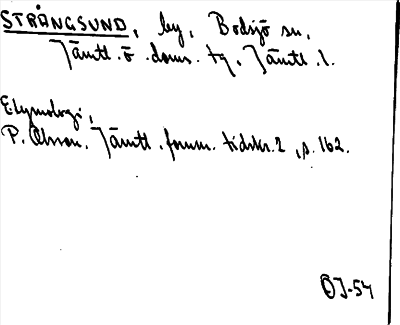 STRÅNGSUND, by, Bodsjö sn,
Jämtl. ö. doms. tg, Jämtl. l.
Etymologi,
P. Olsson, Jämtl. fornm. tidskr. 2, s. 162.
ÖJ-54